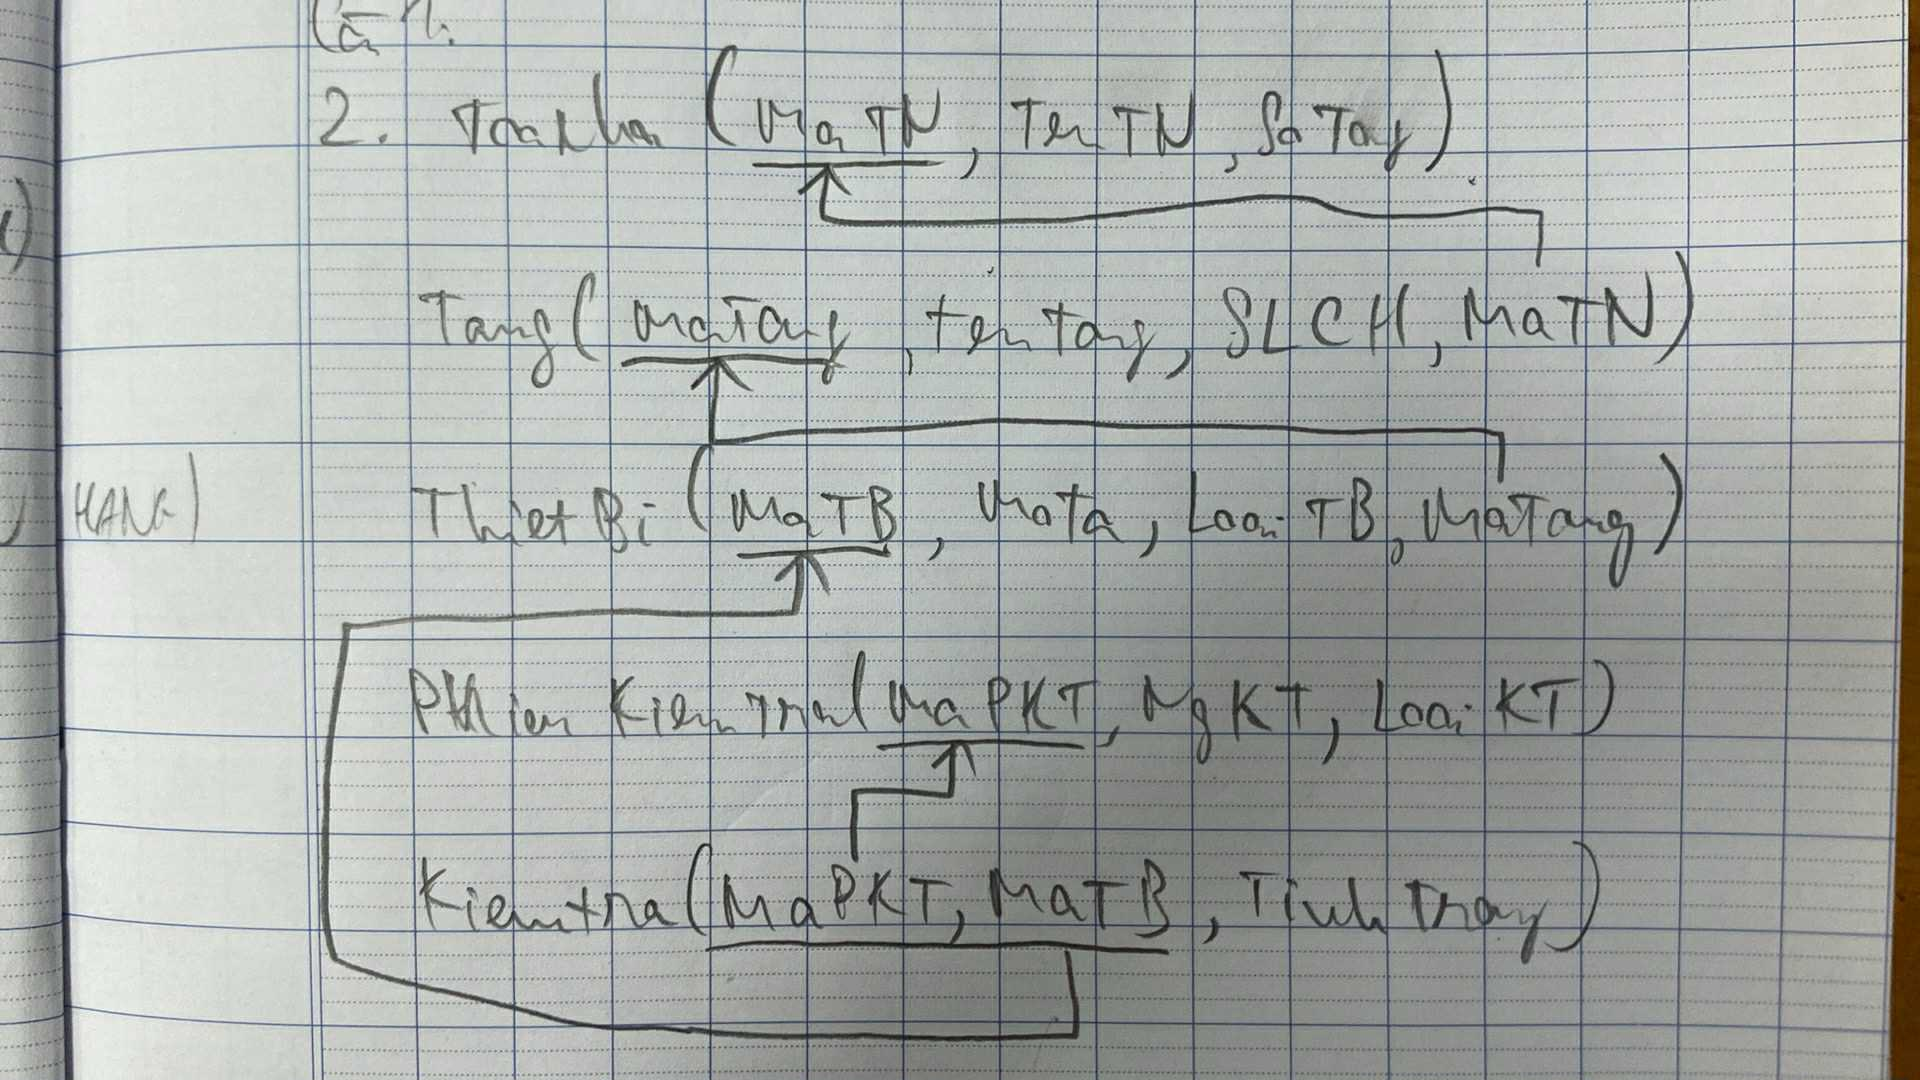 2. ToaNha (MaTN, TenTN, SoTang)
Tang( MaTang, tenTang, SLCH, MaTN)
HANG)
ThietBi (MaTB, MoTa, LoaiTB, MaTang)
PHien Kiem Tra( MaPKT, NgKT, Loai KT)
Kiemtra(MaPKT, MaTB, Tinh Trang)